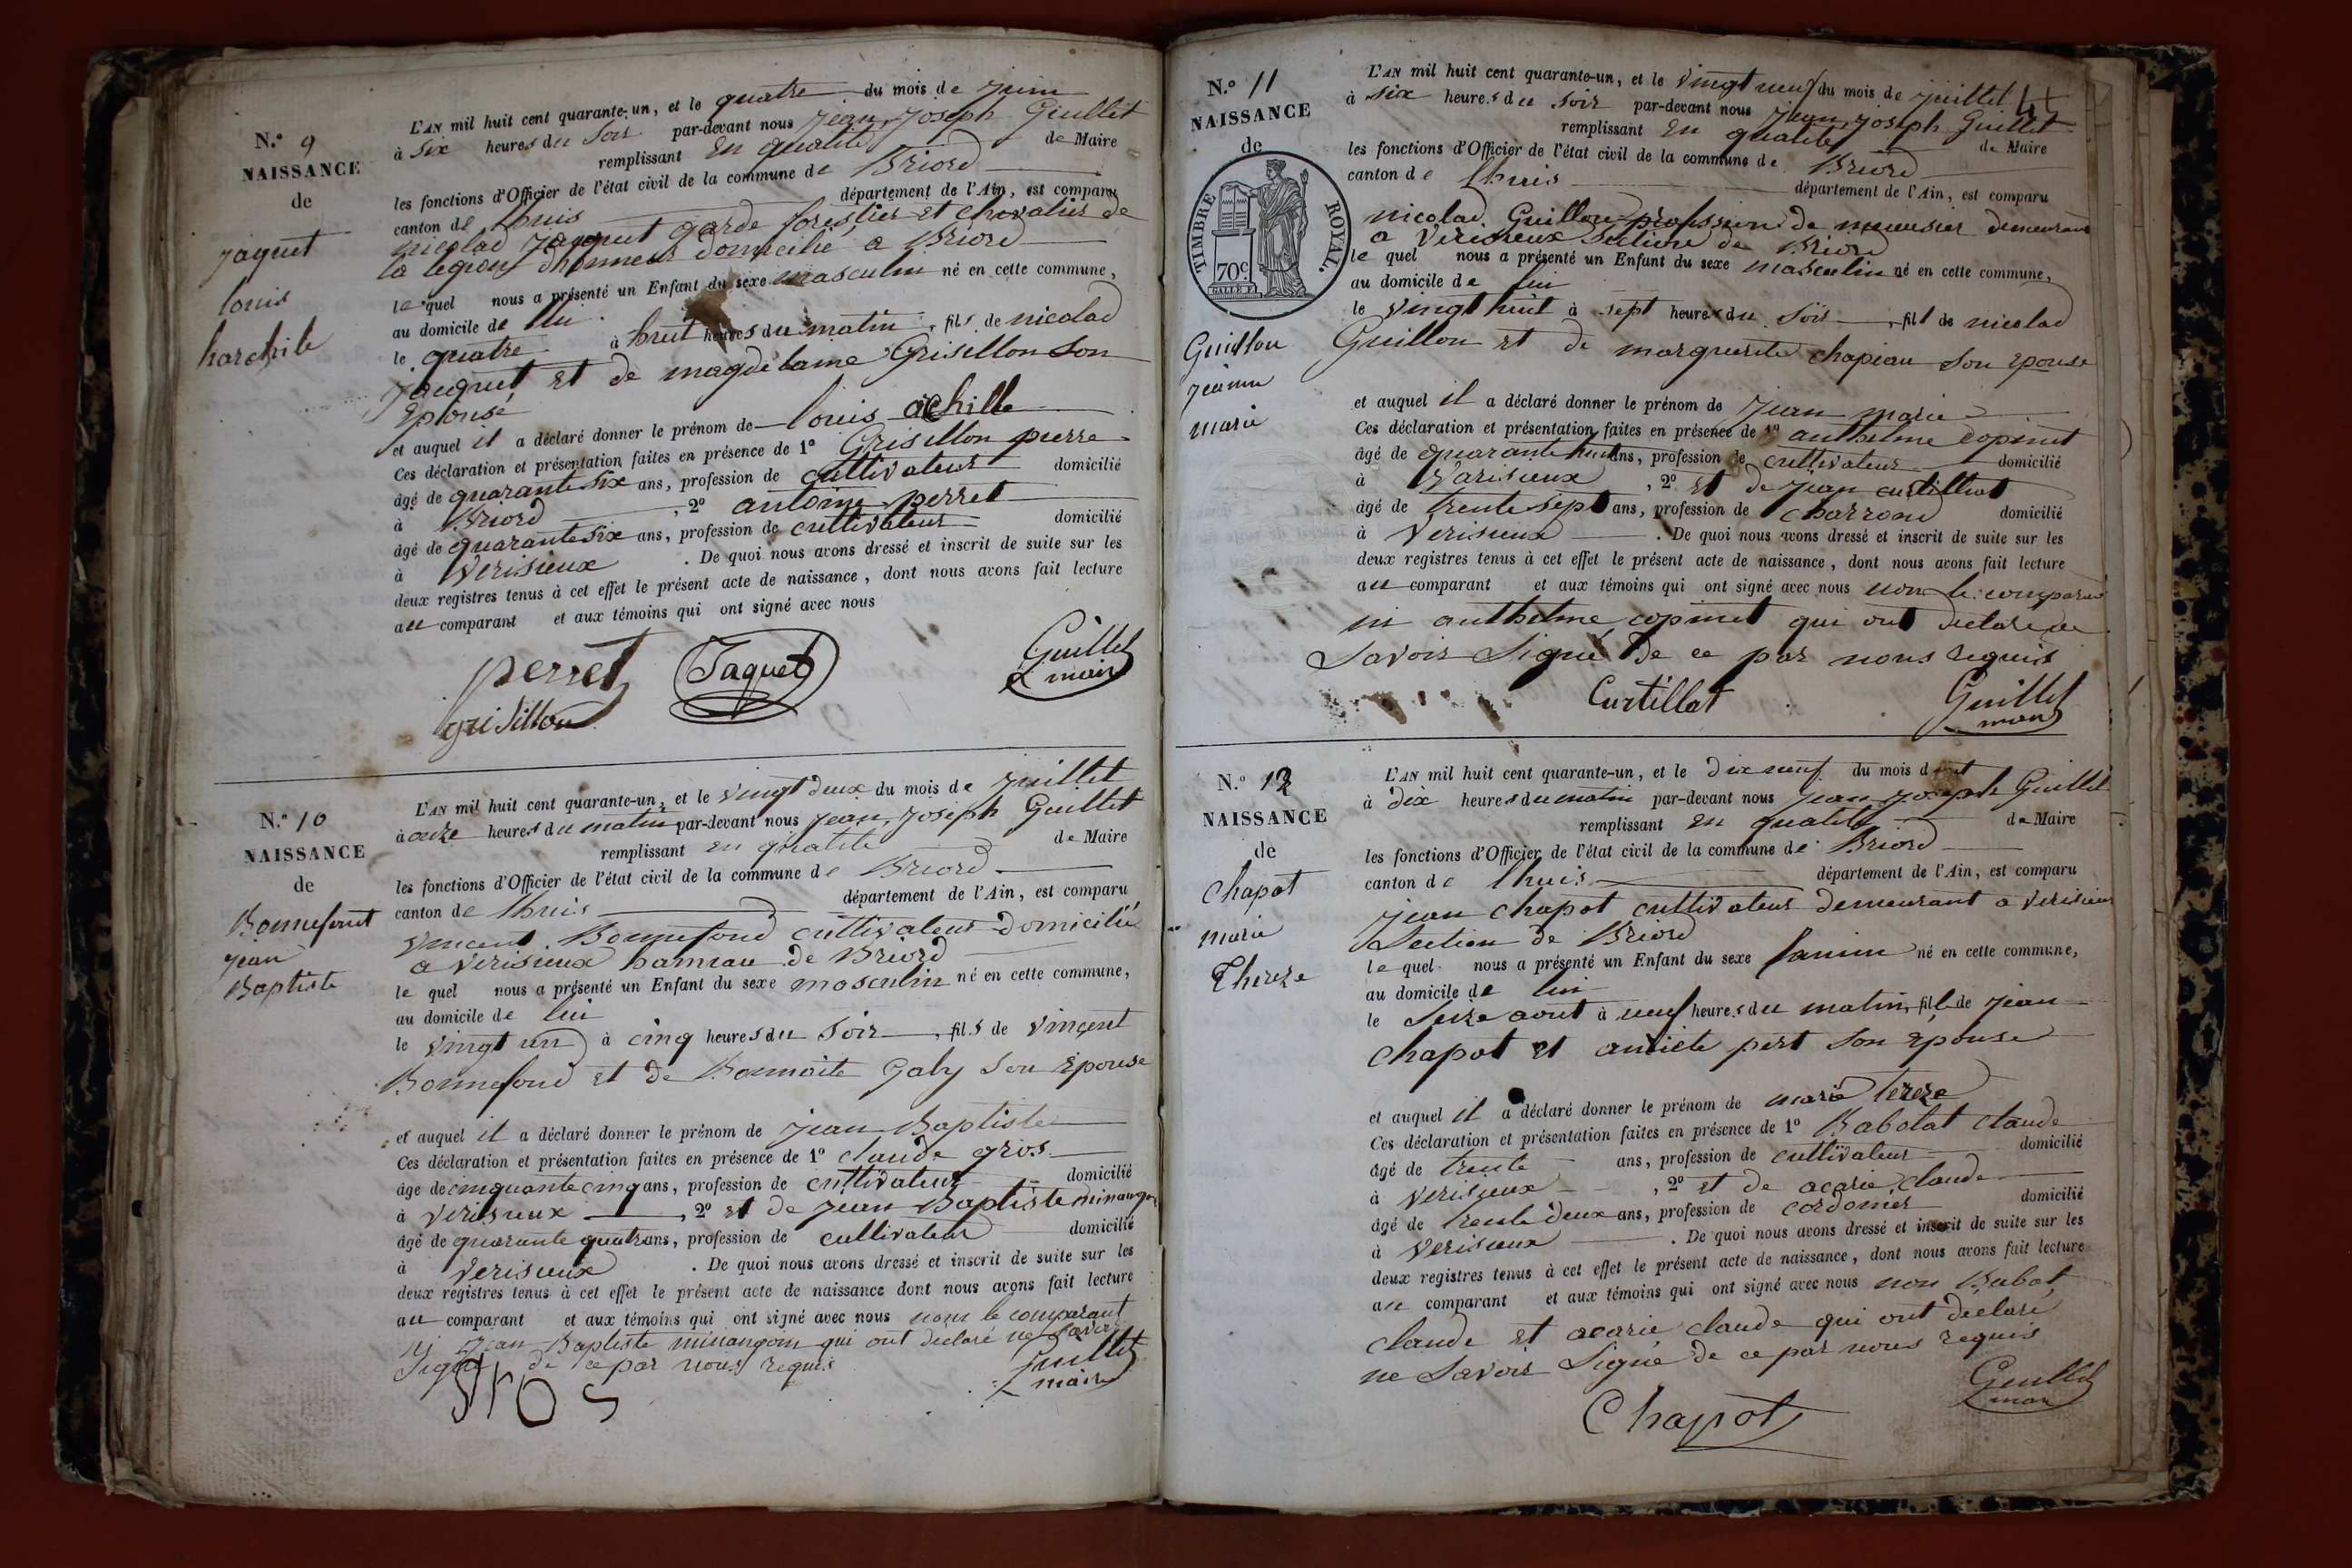 N.o 9
NAISSANCE
de
jaquet
louis
harchile
L'AN mil huit cent quarante-un, et le quatre du mois de juin
à Six heures du Soir par-devant nous jean joseph Guillet
remplissant en qualité de Maire
les fonctions d'Officier de l'état civil de la commune de Briord
canton de lhuis département de l'Ain, est comparu
nicolas jaquet garde forestier et chevalier de
la legion d'honneur domicilié a Briord
le quel nous a présenté un Enfant du sexe masculin né en cette commune,
au domicile de lui
le quatre à huit heures du matin, fils de nicolas
jacquet et de magdelaine Grisillon Son
Epouse
et auquel il a déclaré donner le prénom de louis achille
Ces déclaration et présentation faites en présence de 1o Grisillon pierre
âgé de quarante six ans, profession de cultivateur domicilié
à Briord, 2o antoine perret
âgé de quarante six ans, profession de cultivateur domicilié
à Verisieux. De quoi nous avons dressé et inscrit de suite sur les
deux registres tenus à cet effet le présent acte de naissance, dont nous avons fait lecture
au comparant et aux témoins qui ont signé avec nous
perret Jaquet Guillet
maire
grisillon
N.o 10
NAISSANCE
de
Bonnefont
jean
Baptiste
L'AN mil huit cent quarante-un, et le vingt deux du mois de juillet
à onze heures du matin par-devant nous jean joseph Guillet
remplissant en qualité de Maire
les fonctions d'Officier de l'état civil de la commune de Briord
canton de lhuis département de l'Ain, est comparu
Vincent Bonnefond cultivateur domicilié
a Verisieux hameau de Briord
le quel nous a présenté un Enfant du sexe masculin né en cette commune,
au domicile de lui
le vingt un à cinq heures du Soir, fils de Vincent
Bonnefond et de Bonnoite Gaby Son Epouse
et auquel il a déclaré donner le prénom de jean Baptiste
Ces déclaration et présentation faites en présence de 1o claude gros
âge de cinquante cinq ans, profession de cultivateur domicilié
à Verisieux, 2o et de jean Baptiste minangoin
âgé de quarante quatre ans, profession de cultivateur domicilié
à Verisieux. De quoi nous avons dressé et inscrit de suite sur les
deux registres tenus à cet effet le présent acte de naissance dont nous avons fait lecture
au comparant et aux témoins qui ont signé avec nous non le comparant
ni jean Baptiste minangoin qui ont declaré ne Savoir
Signé de ce par nous requis
gros Guillet
maire
N.o 11
NAISSANCE
de
TIMBRE ROYAL.
70c
Guillon
jeamm
marie
44
L'AN mil huit cent quarante-un, et le vingt neuf du mois de juillet
à six heures du soir par-devant nous jean joseph Guillet
remplissant en qualité de Maire
les fonctions d'Officier de l'état civil de la commune de Briord
canton de lhuis département de l'Ain, est comparu
nicolas Guillon profession de meunier demeurant
a Verisieux Section de Briord
le quel nous a présenté un Enfant du sexe masculin né en cette commune,
au domicile de lui
le vingt huit à sept heures du Soir, fils de nicolas
Guillon et de marguerite chapiau Son epouse
et auquel il a déclaré donner le prénom de jean marie
Ces déclaration et présentation faites en présence de 1o anthelme copinet
âgé de quarante huit ans, profession de cultivateur domicilié
à Varisieux, 2o et de jean curtillat
âgé de trente sept ans, profession de charrond domicilié
à Verisieux. De quoi nous avons dressé et inscrit de suite sur les
deux registres tenus à cet effet le présent acte de naissance, dont nous avons fait lecture
au comparant et aux témoins qui ont signé avec nous non le comparant
ni anthelme copinet qui ont declaré ne
Savoir Signé de ce par nous requis
Curtillat Guillet
maire
N.o 12
NAISSANCE
de
Chapot
marie
Thereze
L'AN mil huit cent quarante-un, et le dix neuf du mois d'aout
à dix heures du matin par-devant nous jean joseph Guillet
remplissant en qualité de Maire
les fonctions d'Officier de l'état civil de la commune de Briord
canton de lhuis département de l'Ain, est comparu
jean chapot cultivateur demeurant a Verisieux
Section de Briord
le quel nous a présenté un Enfant du sexe famine né en cette commune,
au domicile de lui
le Seize aout à neuf heures du matin, fille de jean
chapot et aniete pert Son Epouse
et auquel il a déclaré donner le prénom de marie tereze
Ces déclaration et présentation faites en présence de 1o Babolat claude
âgé de trente ans, profession de cultivateur domicilié
à Verisieux, 2o et de acarie claude
âgé de trente deux ans, profession de cordonier domicilié
à Verisieux. De quoi nous avons dressé et inscrit de suite sur les
deux registres tenus à cet effet le présent acte de naissance, dont nous avons fait lecture
au comparant et aux témoins qui ont signé avec nous non Babot
claude et acarie claude qui ont declaré
ne Savoir Signé de ce par nous requis
Chapot Guillet
maire